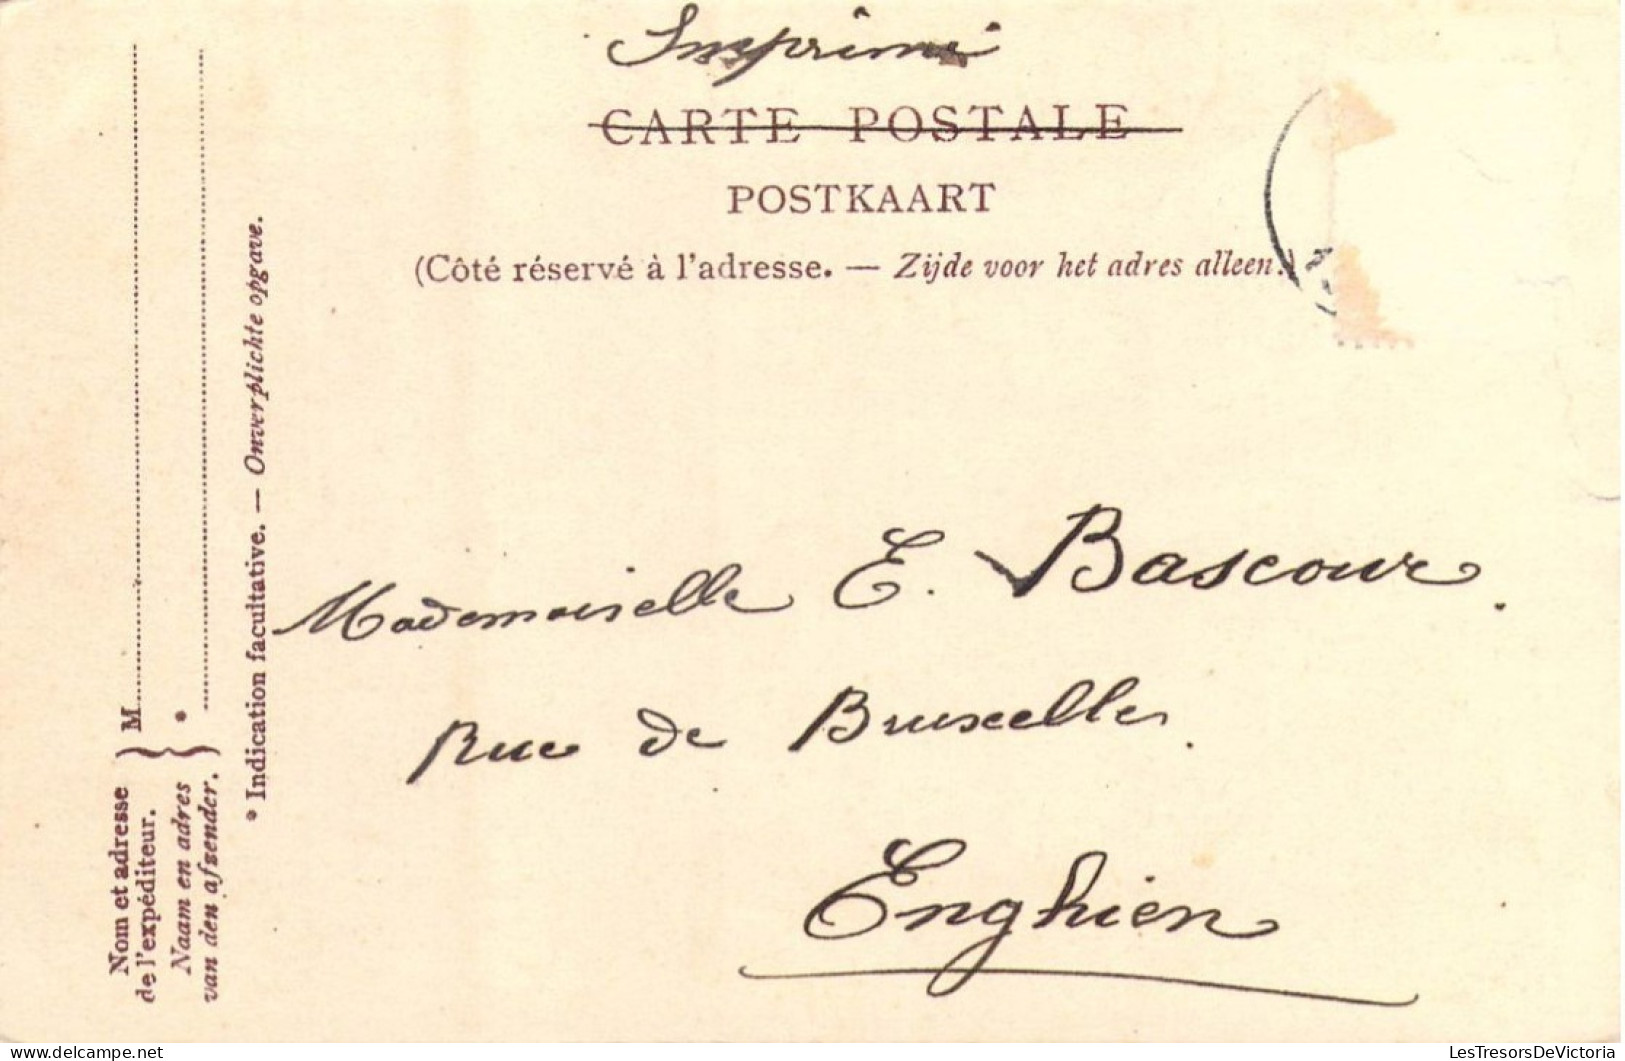 Imprimé
CARTE POSTALE
POSTKAART
(Côté réservé à l'adresse. — Zijde voor het adres alleen.)
Mademoiselle E. Bascour.
Rue de Bruxelles.
Enghien
Nom et adresse
de l'expéditeur.
Naam en adres
van den afzender.
M
*
* Indication facultative. — Onverplichte opgave.
delcampe.net
LesTresorsDeVictoria